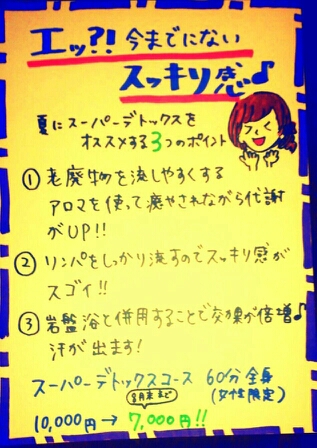 エッ?! 今までにない
スッキリ感♪
夏にスーパーデトックスを
オススメする3つのポイント
① 老廃物を流しやすくする
アロマを使って癒やされながら代謝
がUP!!
② リンパをしっかり流すのでスッキリ感が
スゴイ!!
③ 岩盤浴と併用することで効果が倍増♪
汗が出ます!
スーパーデトックスコース 60分全身
(女性限定)
8月末まで
10,000円→7,000円!!